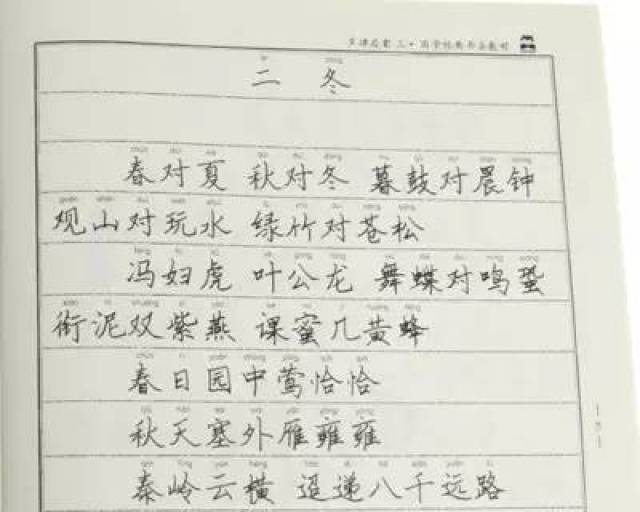 声律启蒙 三·国学经典书法教材
二 冬
春对夏 秋对冬 暮鼓对晨钟
观山对玩水 绿竹对苍松
冯妇虎 叶公龙 舞蝶对鸣蛩
衔泥双紫燕 课蜜几黄蜂
春日园中莺恰恰
秋天塞外雁雍雍
秦岭云横 迢递八千远路